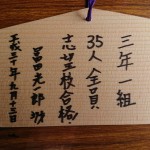 三年一組
35人全員
志望校合格!
冨田光一郎
平成三十年九月十三日